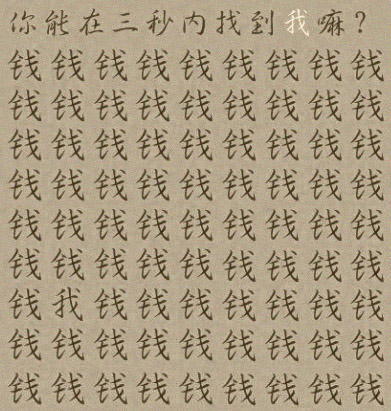 你能在三秒内找到我嘛？
钱钱钱钱钱钱钱钱钱
钱钱钱钱钱钱钱钱钱
钱钱钱钱钱钱钱钱钱
钱钱钱钱钱钱钱钱钱
钱钱钱钱钱钱钱钱钱
钱钱钱钱钱钱钱钱钱
钱我钱钱钱钱钱钱钱
钱钱钱钱钱钱钱钱钱
钱钱钱钱钱钱钱钱钱